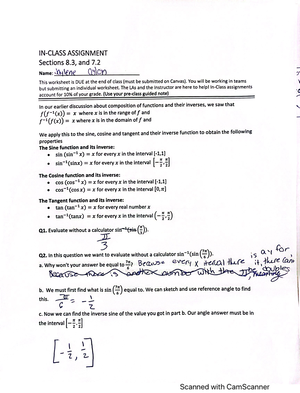 IN-CLASS ASSIGNMENT
Sections 8.3, and 7.2
Name:
This worksheet is DUE at the end of class (must be submitted on Canvas). You will be working in teams
but submitting an individual worksheet. The LAs and the Instructor are here to help! In-Class assignments
account for 10% of your grade. (Use your pre-class guided note)
In our earlier discussion about composition of functions and their inverses, we saw that
f(f⁻¹(x)) = x where x is in the range of f and
f⁻¹(f(x)) = x where x is in the domain of f and
We apply this to the sine, cosine and tangent and their inverse function to obtain the following
properties
The Sine function and its inverse:
• sin (sin⁻¹ x) = x for every x in the interval [-1,1]
• sin⁻¹(sinx) = x for every x in the interval [-π/2, π/2]
The Cosine function and its inverse:
• cos (cos⁻¹ x) = x for every x in the interval [-1,1]
• cos⁻¹(cos x) = x for every x in the interval [0, π]
The Tangent function and its inverse:
• tan (tan⁻¹ x) = x for every real number x
• tan⁻¹(tanx) = x for every x in the interval (-π/2, π/2)
Q1. Evaluate without a calculator sin⁻¹(sin (π/3)).
π/3
Q2. In this question we want to evaluate without a calculator sin⁻¹(sin (7π/6)).
a. Why won't your answer be equal to 7π/6? Because every x there is a y for it, there
Because there is another number with the
b. We must first find what is sin (7π/6) equal to. We can sketch and use reference angle to find
this. π/6 = -1/2
c. Now we can find the inverse sine of the value you got in part b. Our angle must be in
the interval [-π/2, π/2]
[-1/2, 1/2]
Scanned with CamScanner